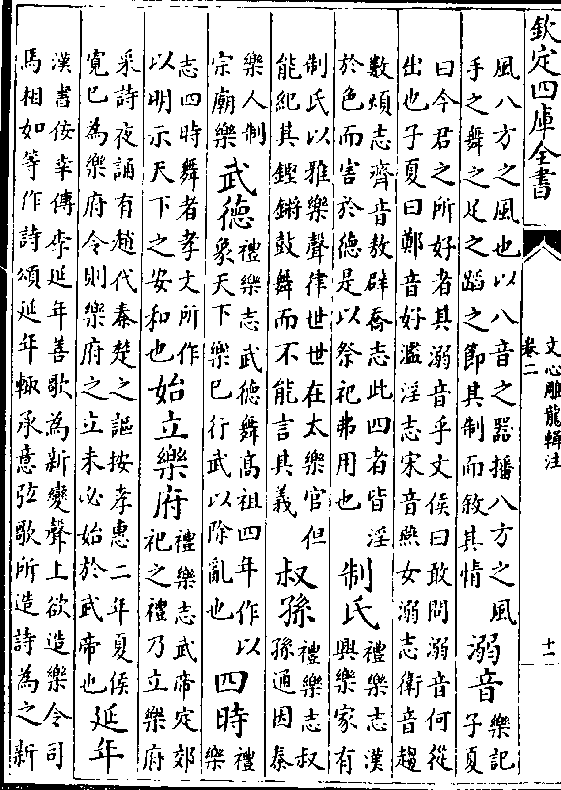 欽定四庫全書
風八方之風也以八音之器播八方之風
手之舞之足之蹈之節其制而敘其情
溺音
樂記
子夏
曰今君之所好者其溺音乎文侯曰敢問溺音何從
出也子夏曰鄭音好濫淫志宋音燕女溺志衛音趨
數煩志齊音敖辟喬志此四者皆淫
於色而害於德是以祭祀弗用也
制氏
禮樂志漢
興樂家有
制氏以雅樂聲律世世在太樂官但
能紀其鏗鏘鼓舞而不能言其義
叔孫
禮樂志叔
孫通因秦
樂人制
宗廟樂
武德
禮樂志武德舞高祖四年作以
象天下樂已行武以除亂也
四時
禮
樂
志四時舞者孝文所作
以明示天下之安和也
始立樂府
禮樂志武帝定郊
祀之禮乃立樂府
采詩夜誦有趙代秦楚之謳按孝惠二年夏侯
寛已為樂府令則樂府之立未必始於武帝也
延年
漢書佞幸傳李延年善歌為新變聲上欲造樂令司
馬相如等作詩頌延年輒承意弦歌所造詩為之新
文心雕龍輯注
卷二
十一